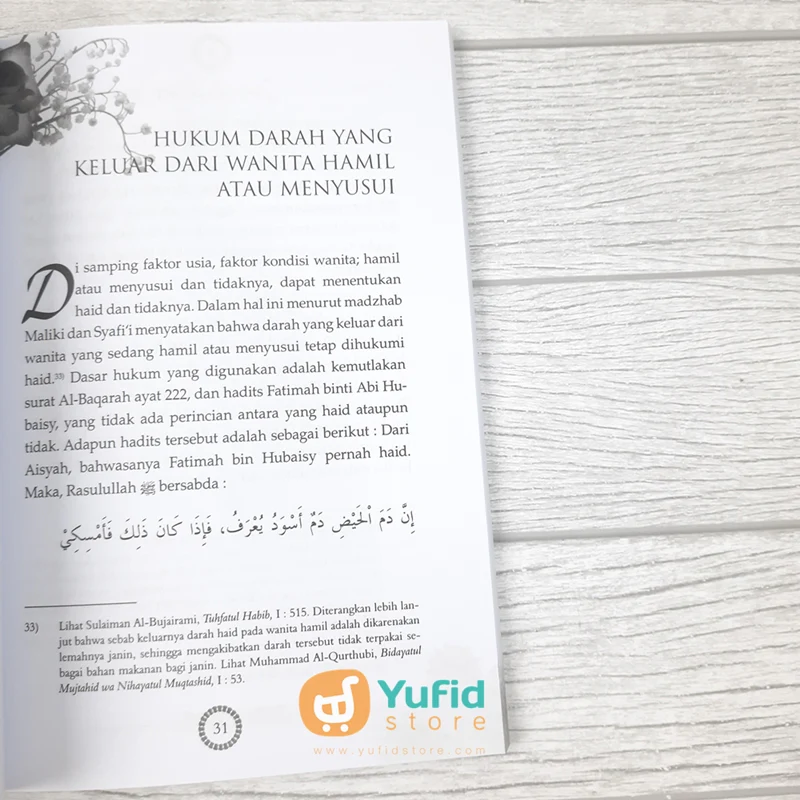 HUKUM DARAH YANG
KELUAR DARI WANITA HAMIL
ATAU MENYUSUI
Di samping faktor usia, faktor kondisi wanita; hamil
atau menyusui dan tidaknya, dapat menentukan
haid dan tidaknya. Dalam hal ini menurut madzhab
Maliki dan Syafi'i menyatakan bahwa darah yang keluar dari
wanita yang sedang hamil atau menyusui tetap dihukumi
haid.33) Dasar hukum yang digunakan adalah kemutlakan
surat Al-Baqarah ayat 222, dan hadits Fatimah binti Abi Hu-
baisy, yang tidak ada perincian antara yang haid ataupun
tidak. Adapun hadits tersebut adalah sebagai berikut : Dari
Aisyah, bahwasanya Fatimah bin Hubaisy pernah haid.
Maka, Rasulullah ﷺ bersabda :
إِنَّ دَمَ الْحَيْضِ دَمٌ أَسْوَدُ يُعْرَفُ، فَإِذَا كَانَ ذَلِكَ فَأَمْسِكِيْ
33) Lihat Sulaiman Al-Bujairami, Tuhfatul Habib, I : 515. Diterangkan lebih lan-
jut bahwa sebab keluarnya darah haid pada wanita hamil adalah dikarenakan
lemahnya janin, sehingga mengakibatkan darah tersebut tidak terpakai se-
bagai bahan makanan bagi janin. Lihat Muhammad Al-Qurthubi, Bidayatul
Mujtahid wa Nihayatul Muqtashid, I : 53.
31
Yufid
store
www.yufidstore.com